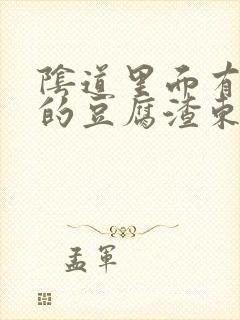 陰道里面有
的豆腐渣東
孟軍